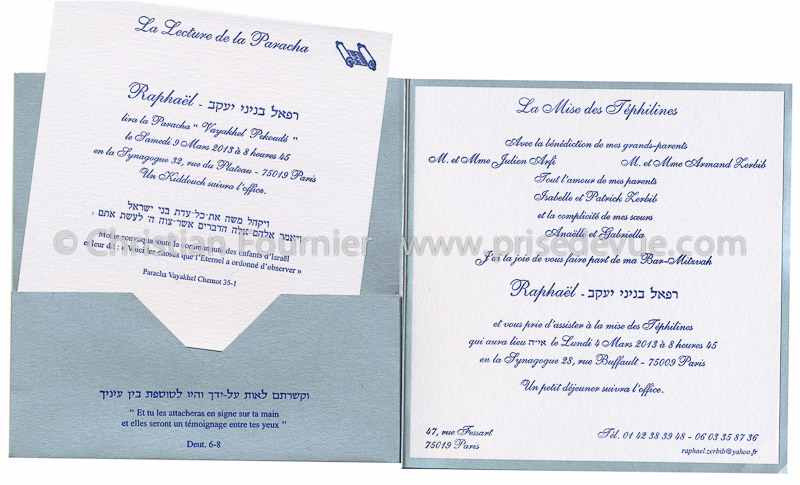 La Lecture de la Paracha
Raphaël - רפאל בניני יעקב
lira la Paracha " Vayakhel Pekoudé "
le Samedi 9 Mars 2013 à 8 heures 45
en la Synagogue 32, rue du Plateau - 75019 Paris
Un Kiddouch suivra l'office.
ויקהל משה את-כל-עדת בני ישראל
ויאמר אלהם אלה הדברים אשר-צוה ה' לעשת אתם :
Moïse convoqua toute la communauté des enfants d'Israël
et leur dit : « Voici les choses que l'Eternel a ordonné d'observer »
Paracha Vayakhel Chemot 35-1
וקשרתם לאות על-ידך והיו לטוטפת בין עיניך
" Et tu les attacheras en signe sur ta main
et elles seront un témoignage entre tes yeux "
Deut. 6-8
La Mise des Téphilines
Avec la bénédiction de mes grands-parents
M. et Mme Julien Arfi M. et Mme Armand Zerbib
Tout l'amour de mes parents
Isabelle et Patrick Zerbib
et la complicité de mes sœurs
Anaëlle et Gabriella
J'ai la joie de vous faire part de ma Bar-Mitzvah
Raphaël - רפאל בניני יעקב
et vous prie d'assister à la mise des Téphilines
qui aura lieu אי"ה le Lundi 4 Mars 2013 à 8 heures 45
en la Synagogue 28, rue Buffault - 75009 Paris
Un petit déjeuner suivra l'office.
47, rue Fessart
75019 Paris
Tél. 01 42 38 39 48 - 06 03 35 87 36
raphael.zerbib@yahoo.fr
© Christian Fournier - www.prisedevue.com